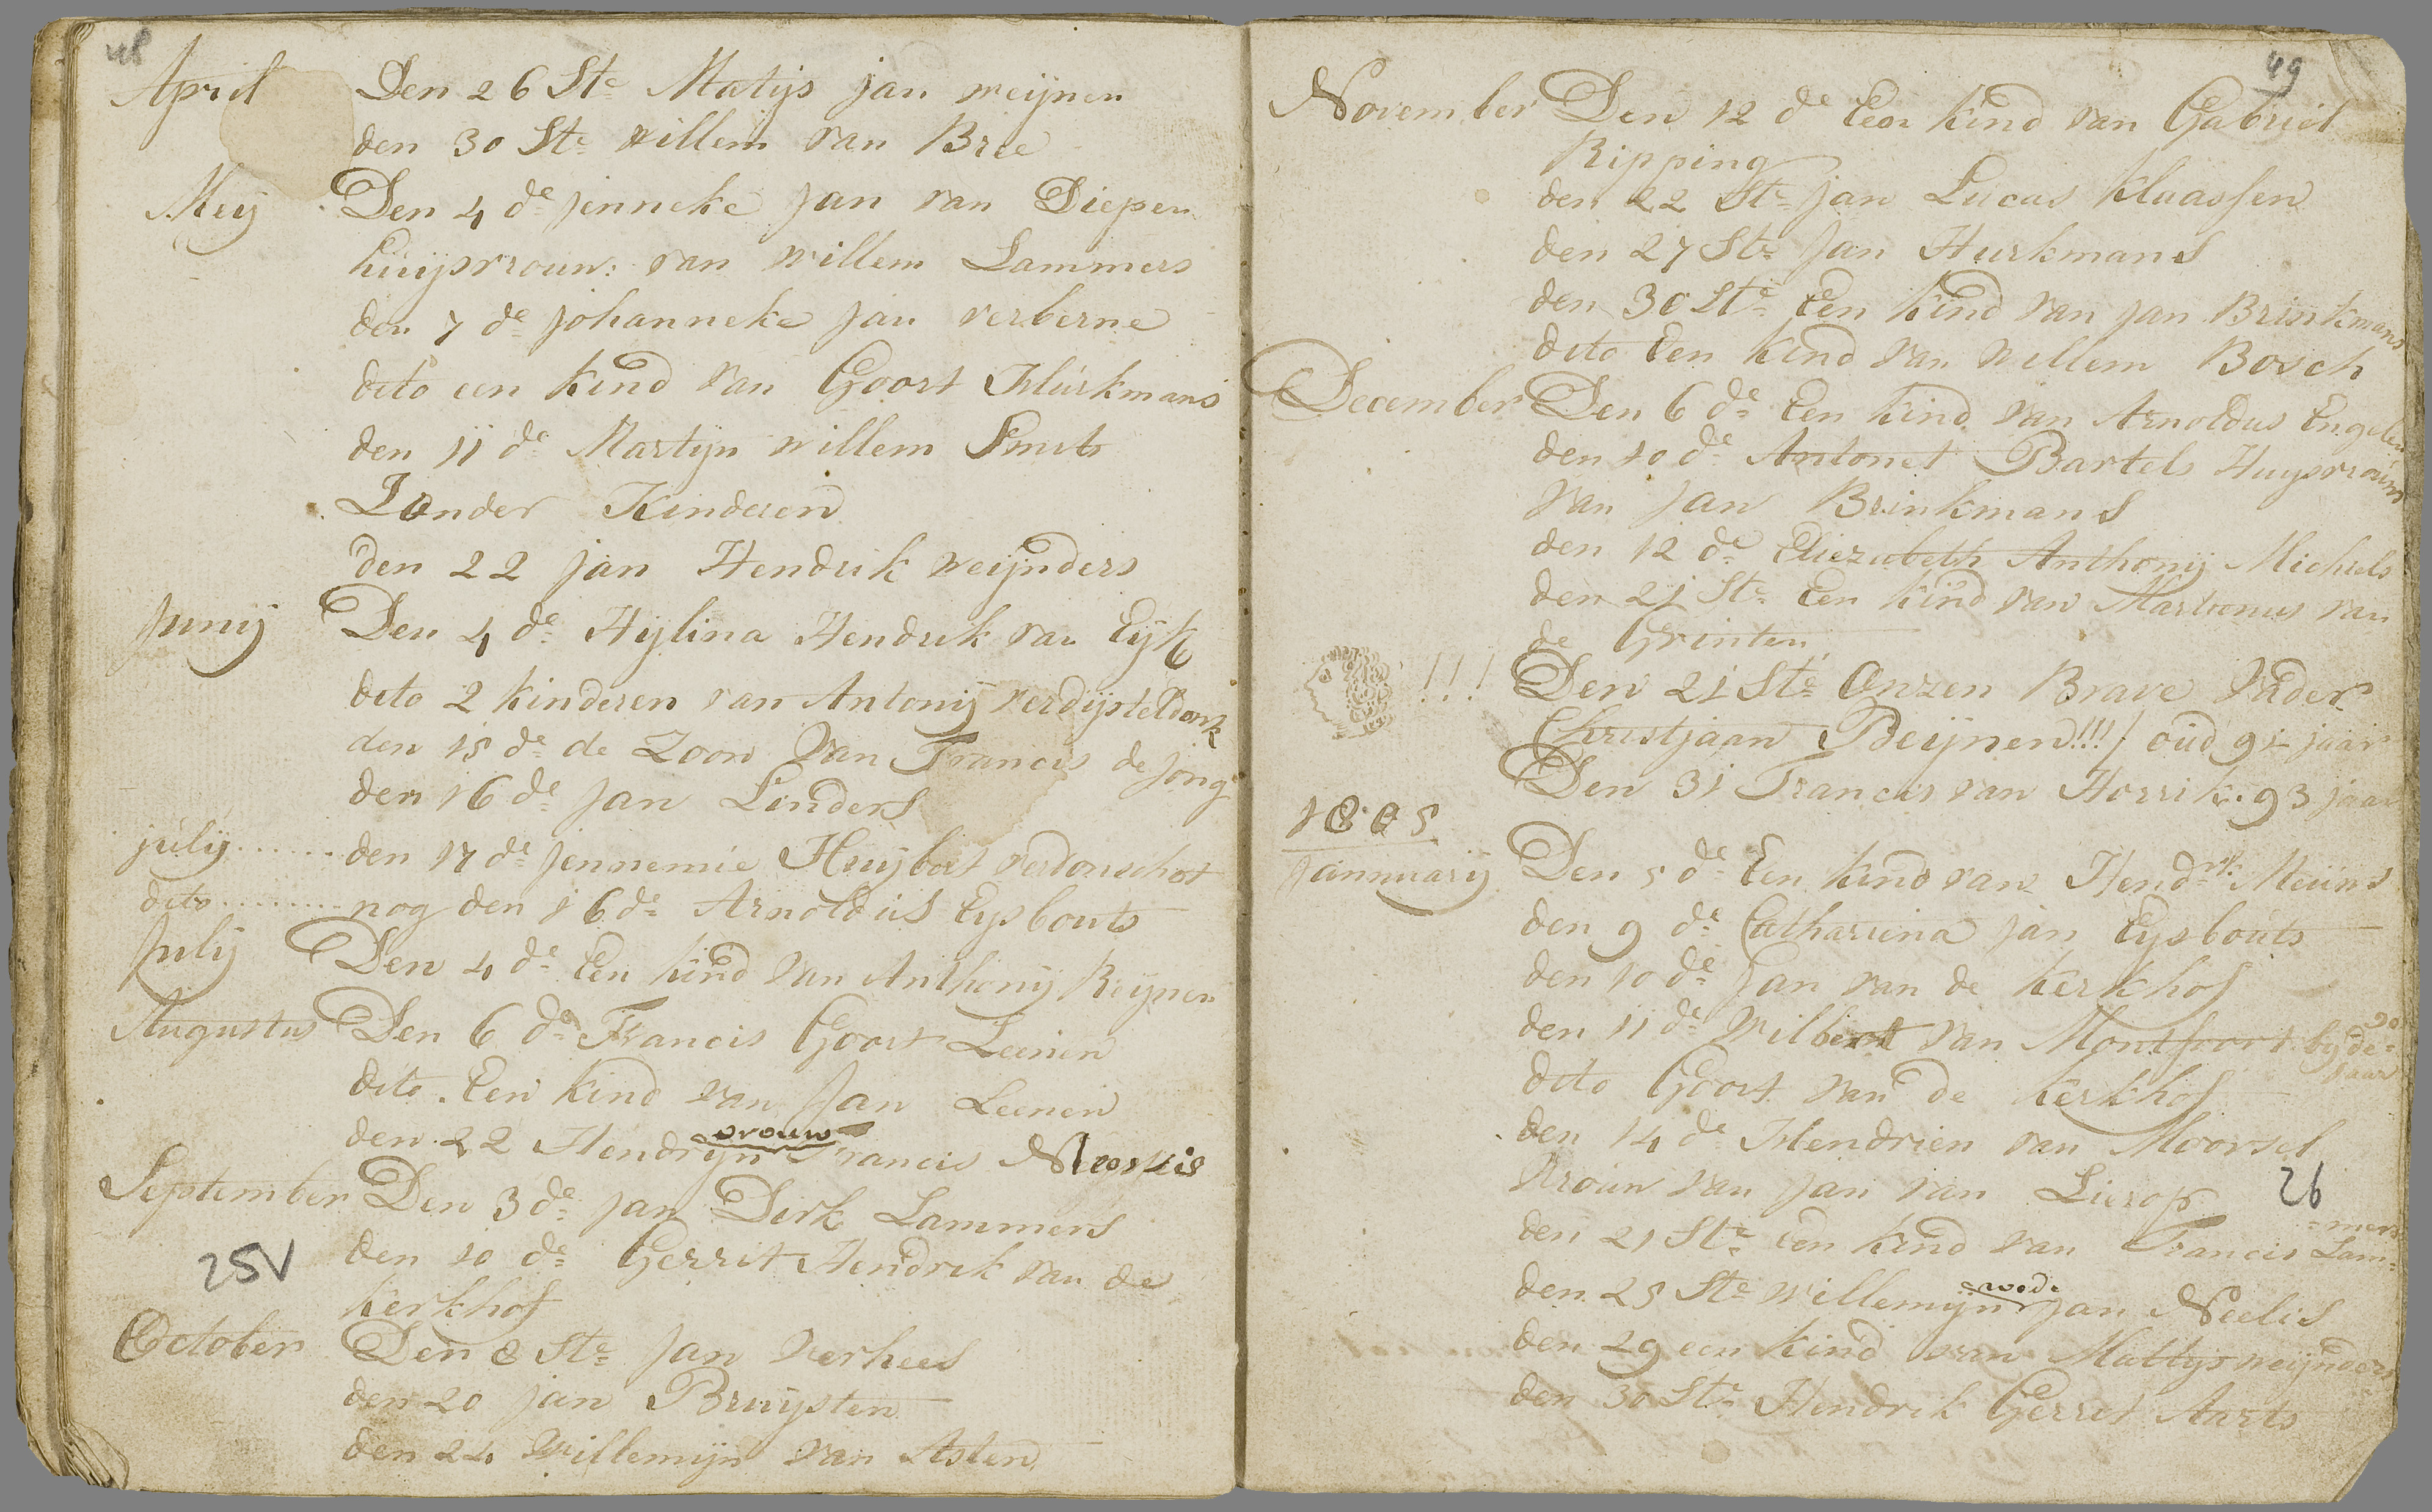 48
April Den 26 Ste Matijs jan weijnen
den 30 Ste willem van Bree
Meij Den 4 de jenneke jan van Diepen
huijsvrouw: van willem Lammers
den 7 de johanneke jan verberne
dito een kind van Goort Hurkmans
den 11 de Martijn willem Smits
Zonder Kinderen
den 22 jan Hendrik weijnders
Junij Den 4 de Hijlina Hendrik van Eijk
dito 2 kinderen van Antonij verdijsteldonk
den 15 de de Zoon van Francis de jong
den 16 de Jan Linders
julij ...... den 17 de jennemie Huijbert verdonschot
dito ......... nog den 16 de Arnoldus Eysbouts
Julij Den 4 de Een kind van Anthonij Reijnen
Augustus Den 6 de Francis Goort Leenen
dito. Een kind van Jan Leenen
vrouw
den 22 Hendrijn Francis
September Den 3 de jan Dirk Lammers
den 10 de Gerrit Hendrik van de
25V
kerkhof
October Den 8 Ste Jan Verhees
den 20 jan Bruijsten
den 24 Willemijn van Asten
49
November Den 12 de Een kind van Gabriel
Ripping
den 22 Ste jan Lucas Klaassen
den 27 Ste Jan Hurkmans
den 30 Ste Een kind van jan Brinkmans
dito Een kind van willem Bosch
December Den 6 de Een kind van Arnoldus Engelen
den 10 de Antonet Bartels Huysvrouw
van Jan Brinkmans
den 12 de Eliezabeth Anthonij Michiels
den 21 Ste Een kind van Martienus van
de Grinten
!!! Den 21 Ste Onzen Brave Vader
Christjaan Beijnen!!!/ oud 91 jaar
Den 31 Francis van Horrik. 93 jaar
1805
Jannuarij Den 5 de Een kind van Hendrk. Meüns
den 9 de Catharina jan Eysbouts
den 10 de Jan van de kerkhof
den 11 de Wilbert van Montfoort by de 90
jaar
dito Goort van de kerkhof
den 14 de Hendrien van Moorsel
vrouw van Jan van Lierop
26
=mers
den 21 Ste een kind van Francis Lam=
wede
den 25 Ste willemijn jan Neelis
den 29 een kind van Mattijs weijnders
den 30 Ste Hendrik Gerret Aarts